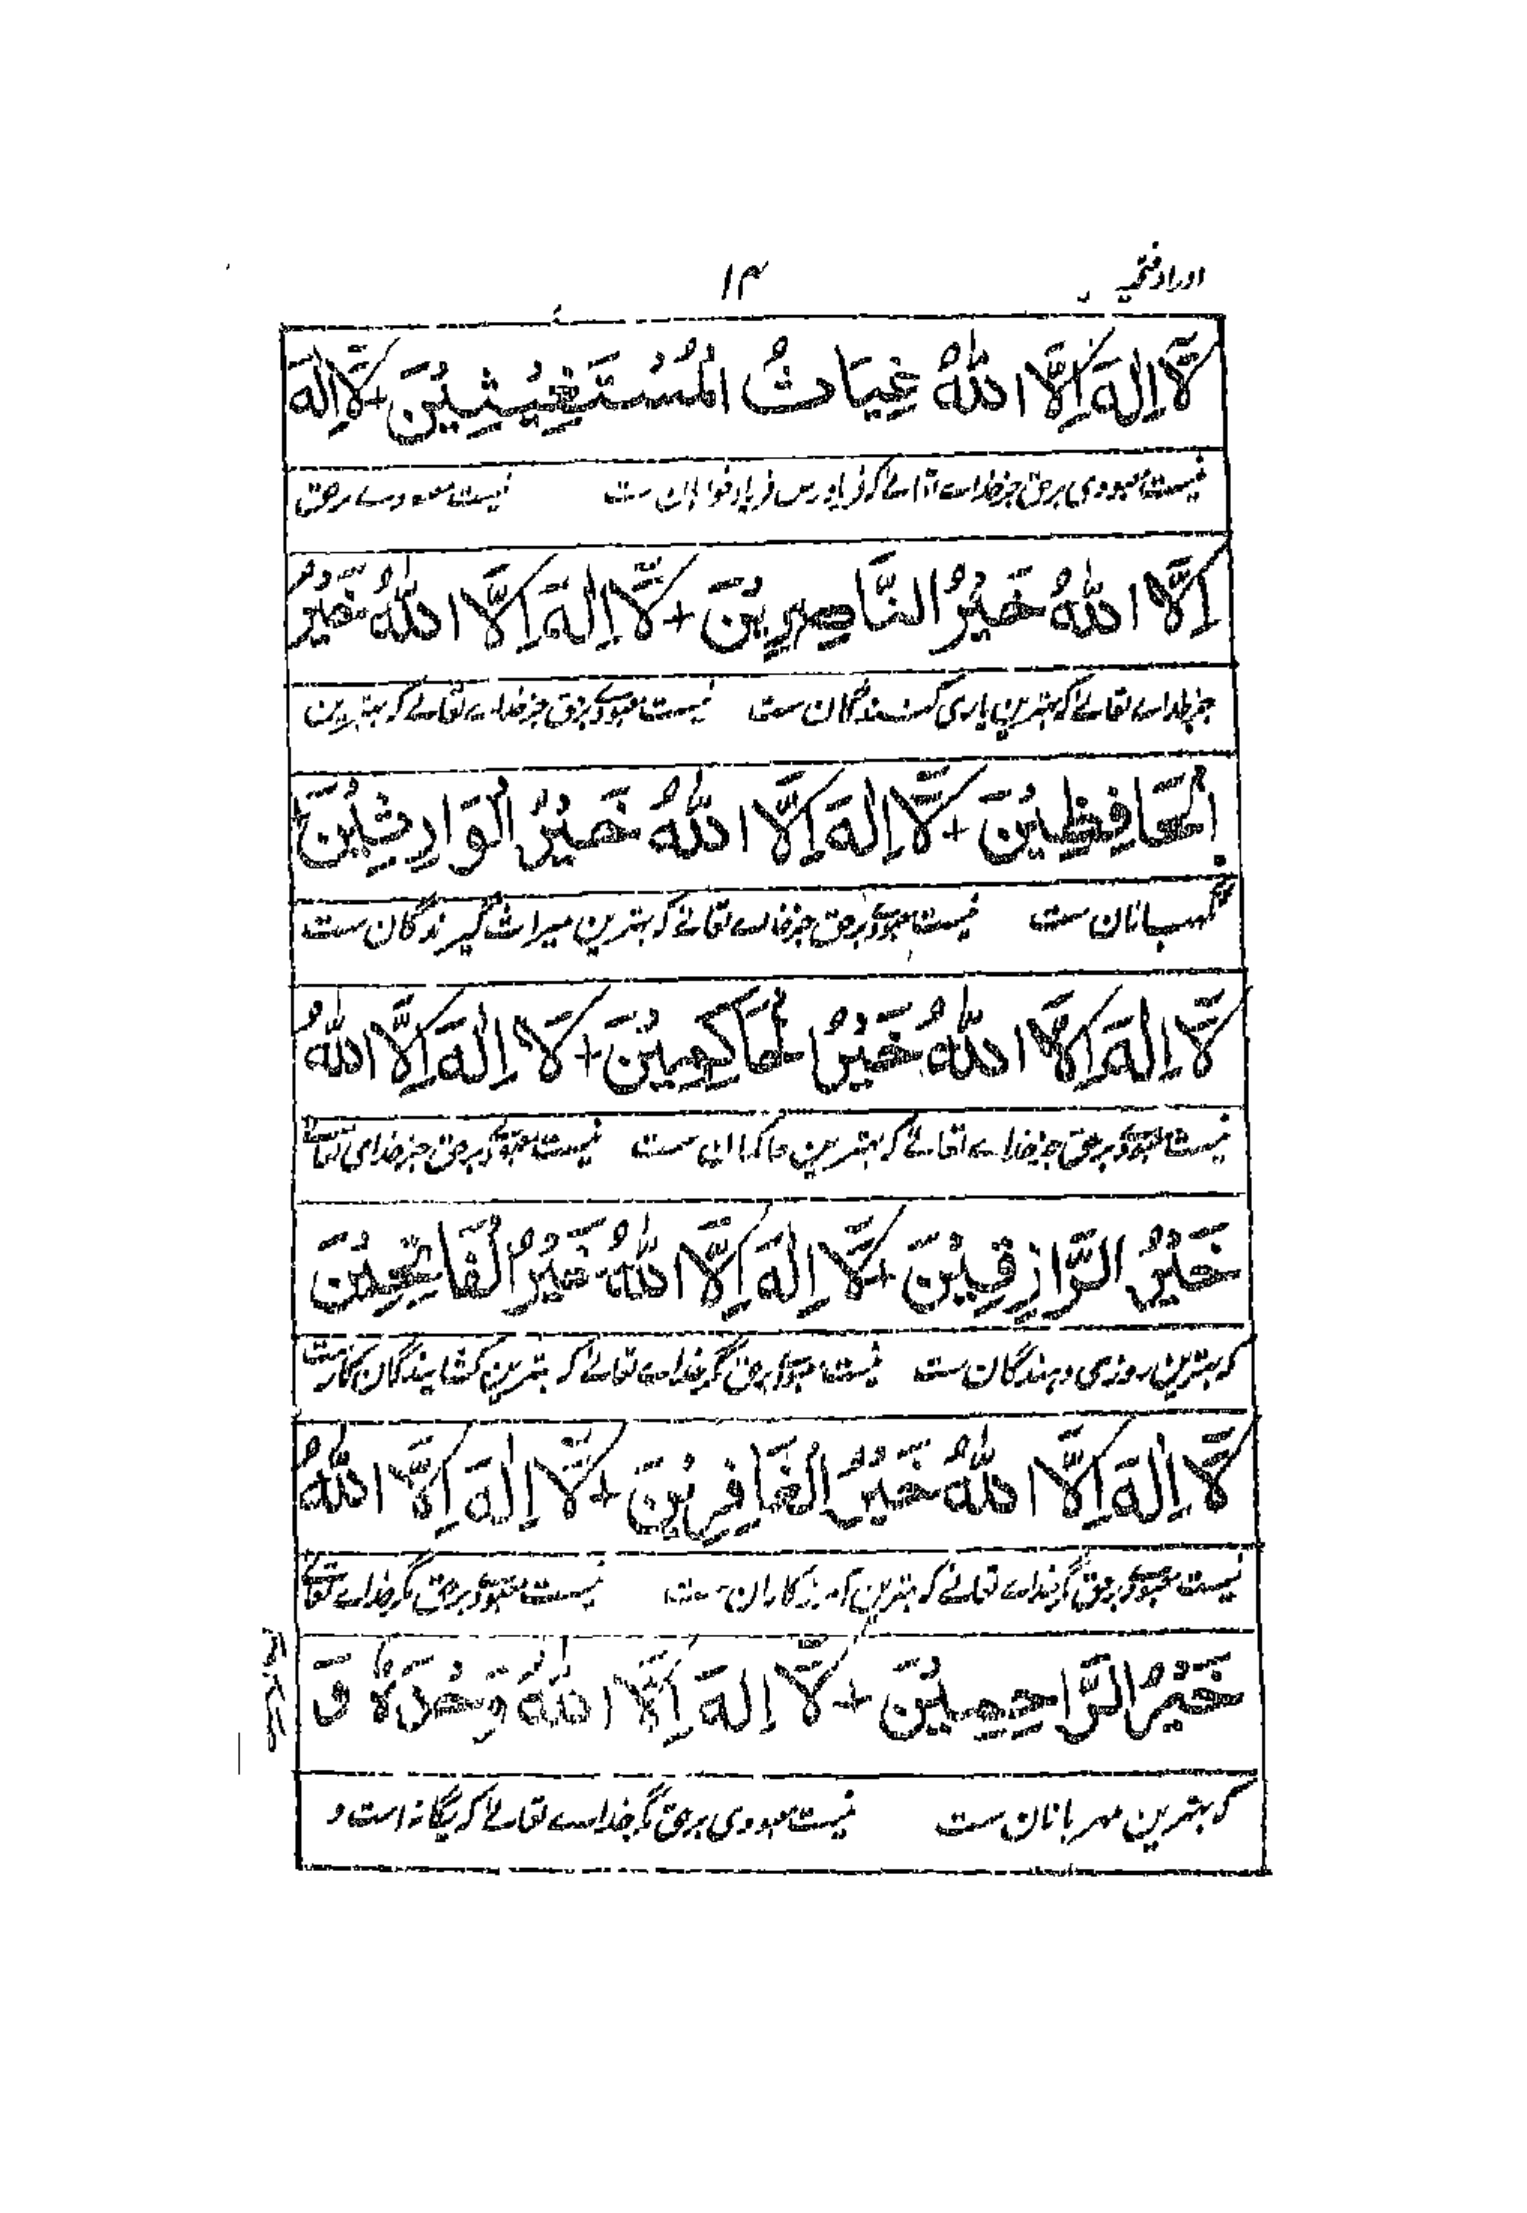 اوراد فتحیہ ۱۴
لَآ اِلٰهَ اِلَّا اللّٰهُ غِيَاثُ الْمُسْتَغِيْثِيْنَ + لَآ اِلٰهَ
نیست معبودی برحق جز خداے تعالے کہ فریادرس فریاد خواہان ست نیست معبودے برحق
اِلَّا اللّٰهُ خَيْرُ النَّاصِرِيْنَ + لَآ اِلٰهَ اِلَّا اللّٰهُ خَيْرُ
جز خداے تعالے کہ بہترین یاری کنندگان ست نیست معبودے برحق جز خداے تعالے کہ بہترین
الْحَافِظِيْنَ + لَآ اِلٰهَ اِلَّا اللّٰهُ خَيْرُ الْوَارِثِيْنَ
نگہبانان ست نیست معبودے برحق جز خداے تعالے کہ بہترین میراث گیرندگان ست
لَآ اِلٰهَ اِلَّا اللّٰهُ خَيْرُ الْحَاكِمِيْنَ + لَآ اِلٰهَ اِلَّا اللّٰهُ
نیست معبودے برحق جز خداے تعالے کہ بہترین حاکمان ست نیست معبودے برحق جز خدای تعالے
خَيْرُ الرَّازِقِيْنَ + لَآ اِلٰهَ اِلَّا اللّٰهُ خَيْرُ الْفَاتِحِيْنَ
کہ بہترین روزی دہندگان ست نیست معبودے برحق مگر خداے تعالے کہ بہترین کشایندگان کارست
لَآ اِلٰهَ اِلَّا اللّٰهُ خَيْرُ الْغَافِرِيْنَ + لَآ اِلٰهَ اِلَّا اللّٰهُ
نیست معبودے برحق مگر خداے تعالے کہ بہترین آمرزگاران ست نیست معبودے برحق مگر خداے تعالے
خَيْرُ الرَّاحِمِيْنَ + لَآ اِلٰهَ اِلَّا اللّٰهُ وَحْدَهٗ وَ
کہ بہترین مہربانان ست نیست معبودی برحق مگر خداے تعالے کہ یگانہ است و